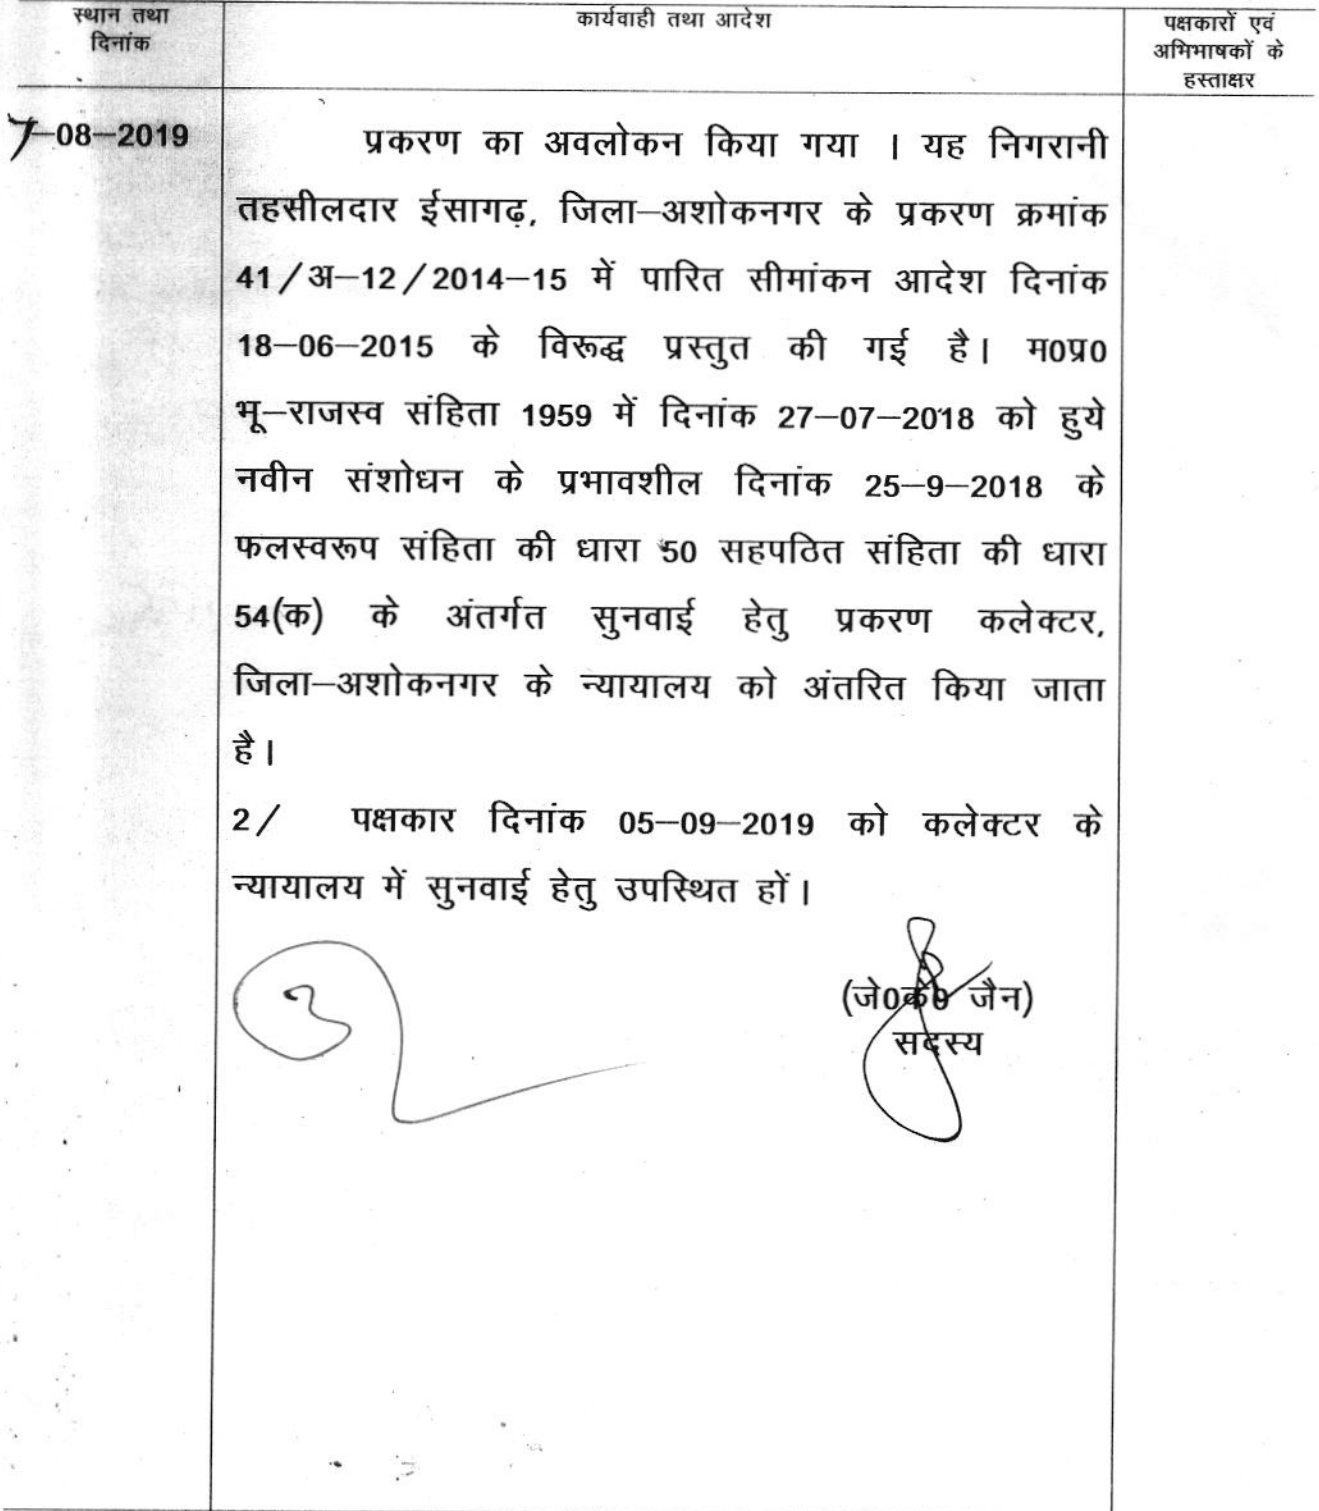 स्थान तथा
दिनांक
कार्यवाही तथा आदेश
पक्षकारों एवं
अभिभाषकों के
हस्ताक्षर
7-08-2019
प्रकरण का अवलोकन किया गया । यह निगरानी
तहसीलदार ईसागढ़, जिला-अशोकनगर के प्रकरण क्रमांक
41/अ-12/2014-15 में पारित सीमांकन आदेश दिनांक
18-06-2015 के विरूद्ध प्रस्तुत की गई है। म0प्र0
भू-राजस्व संहिता 1959 में दिनांक 27-07-2018 को हुये
नवीन संशोधन के प्रभावशील दिनांक 25-9-2018 के
फलस्वरूप संहिता की धारा 50 सहपठित संहिता की धारा
54(क) के अंतर्गत सुनवाई हेतु प्रकरण कलेक्टर,
जिला-अशोकनगर के न्यायालय को अंतरित किया जाता
है।
2/ पक्षकार दिनांक 05-09-2019 को कलेक्टर के
न्यायालय में सुनवाई हेतु उपस्थित हों।
(जे0के0 जैन)
सदस्य